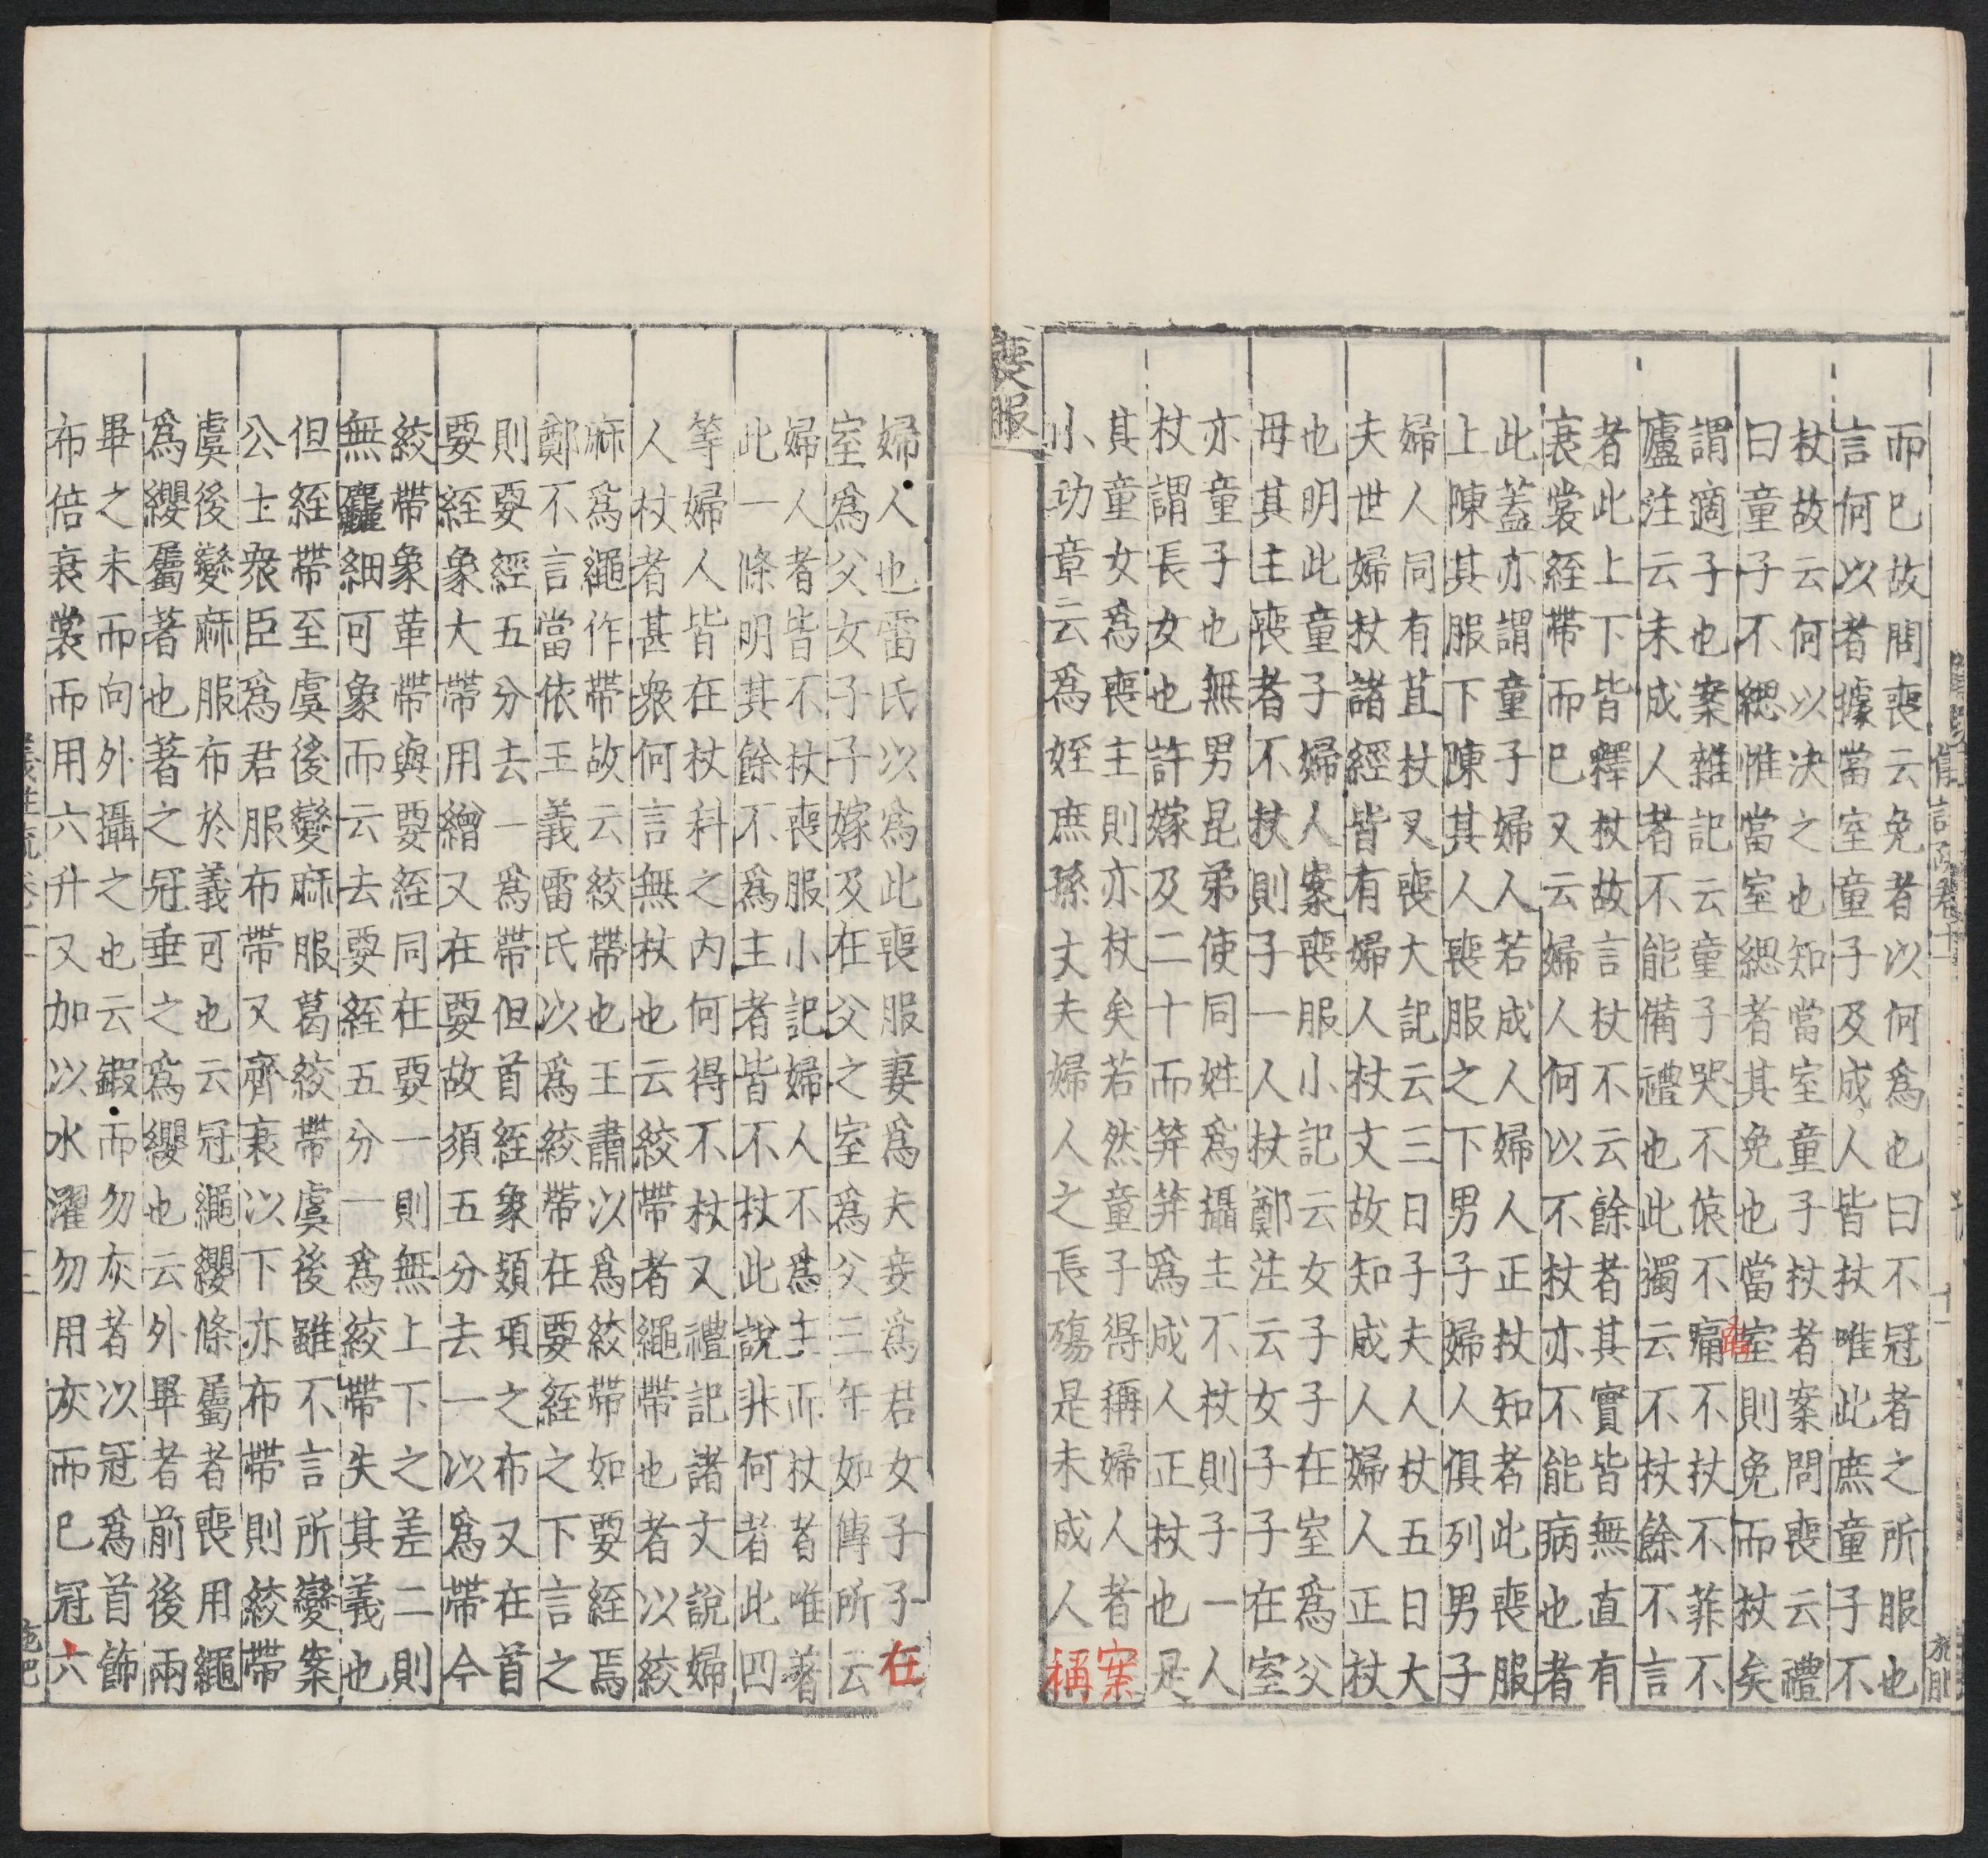 而已故問喪云免者以何爲也曰不冠者之所服也
言何以者據當室童子及成人皆杖唯此庶童子不
杖故云何以决之也知當室童子杖者案問喪云禮
曰童子不緦惟當室緦者其免也當室則免而杖矣
謂適子也案雜記云童子哭不偯不踊不杖不菲不
廬注云未成人者不能備禮也此獨云不杖餘不言
者此上下皆釋杖故言杖不云餘者其實皆無直有
衰裳絰帶而已又云婦人何以不杖亦不能病也者
此蓋亦謂童子婦人若成人婦人正杖知者此喪服
上陳其服下陳其人喪服之下男子婦人俱列男子
婦人同有苴杖又喪大記云三日子夫人杖五日大
夫世婦杖諸經皆有婦人杖文故知成人婦人正杖
也明此童子婦人案喪服小記云女子子在室爲父
母其主喪者不杖則子一人杖鄭注云女子子在室
亦童子也無男昆弟使同姓爲攝主不杖則子一人
杖謂長女也許嫁及二十而笄笄爲成人正杖也是
其童女爲喪主則亦杖矣若然童子得稱婦人者案
小功章云爲姪庶孫丈夫婦人之長殤是未成人稱
喪服
婦人也雷氏以爲此喪服妻爲夫妾爲君女子子在
室爲父女子子嫁及在父之室爲父三年如傳所云
婦人者皆不杖喪服小記婦人不爲主而杖者唯著
此一條明其餘不爲主者皆不杖此說非何者此四
等婦人皆在杖科之內何得不杖又禮記諸文說婦
人杖者甚衆何言無杖也云絞帶者繩帶也者以絞
麻爲繩作帶故云絞帶也王肅以爲絞帶如要絰焉
鄭不言當依王義雷氏以爲絞帶在要絰之下言之
則要經五分去一爲帶但首絰象頍項之布又在首
要絰象大帶用繒又在要故須五分去一以爲帶今
絞帶象革帶與要絰同在要一則無上下之差二則
無麤細可象而云去要絰五分一爲絞帶失其義也
但絰帶至虞後變麻服葛絞帶虞後雖不言所變案
公士衆臣爲君服布帶又齊衰以下亦布帶則絞帶
虞後變麻服布於義可也云冠繩纓條屬者喪用繩
爲纓屬著也著之冠垂之爲纓也云外畢者前後兩
畢之末而向外攝之也云鍜而勿灰者以冠爲首飾
布倍衰裳而用六升又加以水濯勿用灰而已冠六